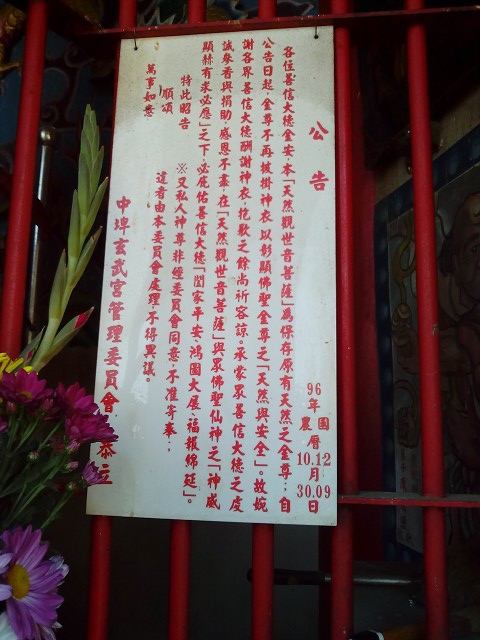 公告
各位善信大德金安，本「天然觀世音菩薩」為保存原有天然之金尊；自
公告日起，金尊不再披掛神衣，以彰顯佛聖金尊之「天然與安全」。故婉
謝各界善信大德酬謝神衣，抱歉之餘尚祈容諒。承蒙眾善信大德之虔
誠參香與捐助，感恩不盡，在「天然觀世音菩薩」與眾佛聖仙神之「神威
顯赫有求必應」之下，必庇佑善信大德「闔家平安、鴻圖大展、福報綿延」。
特此昭告
順頌
萬事如意
※又私人神尊非經委員會同意，不准寄奉；
違者由本委員會處理，不得異議。
中埤玄武宮管理委員會 恭立
96年 國 10.12 月 30.09 日
農曆